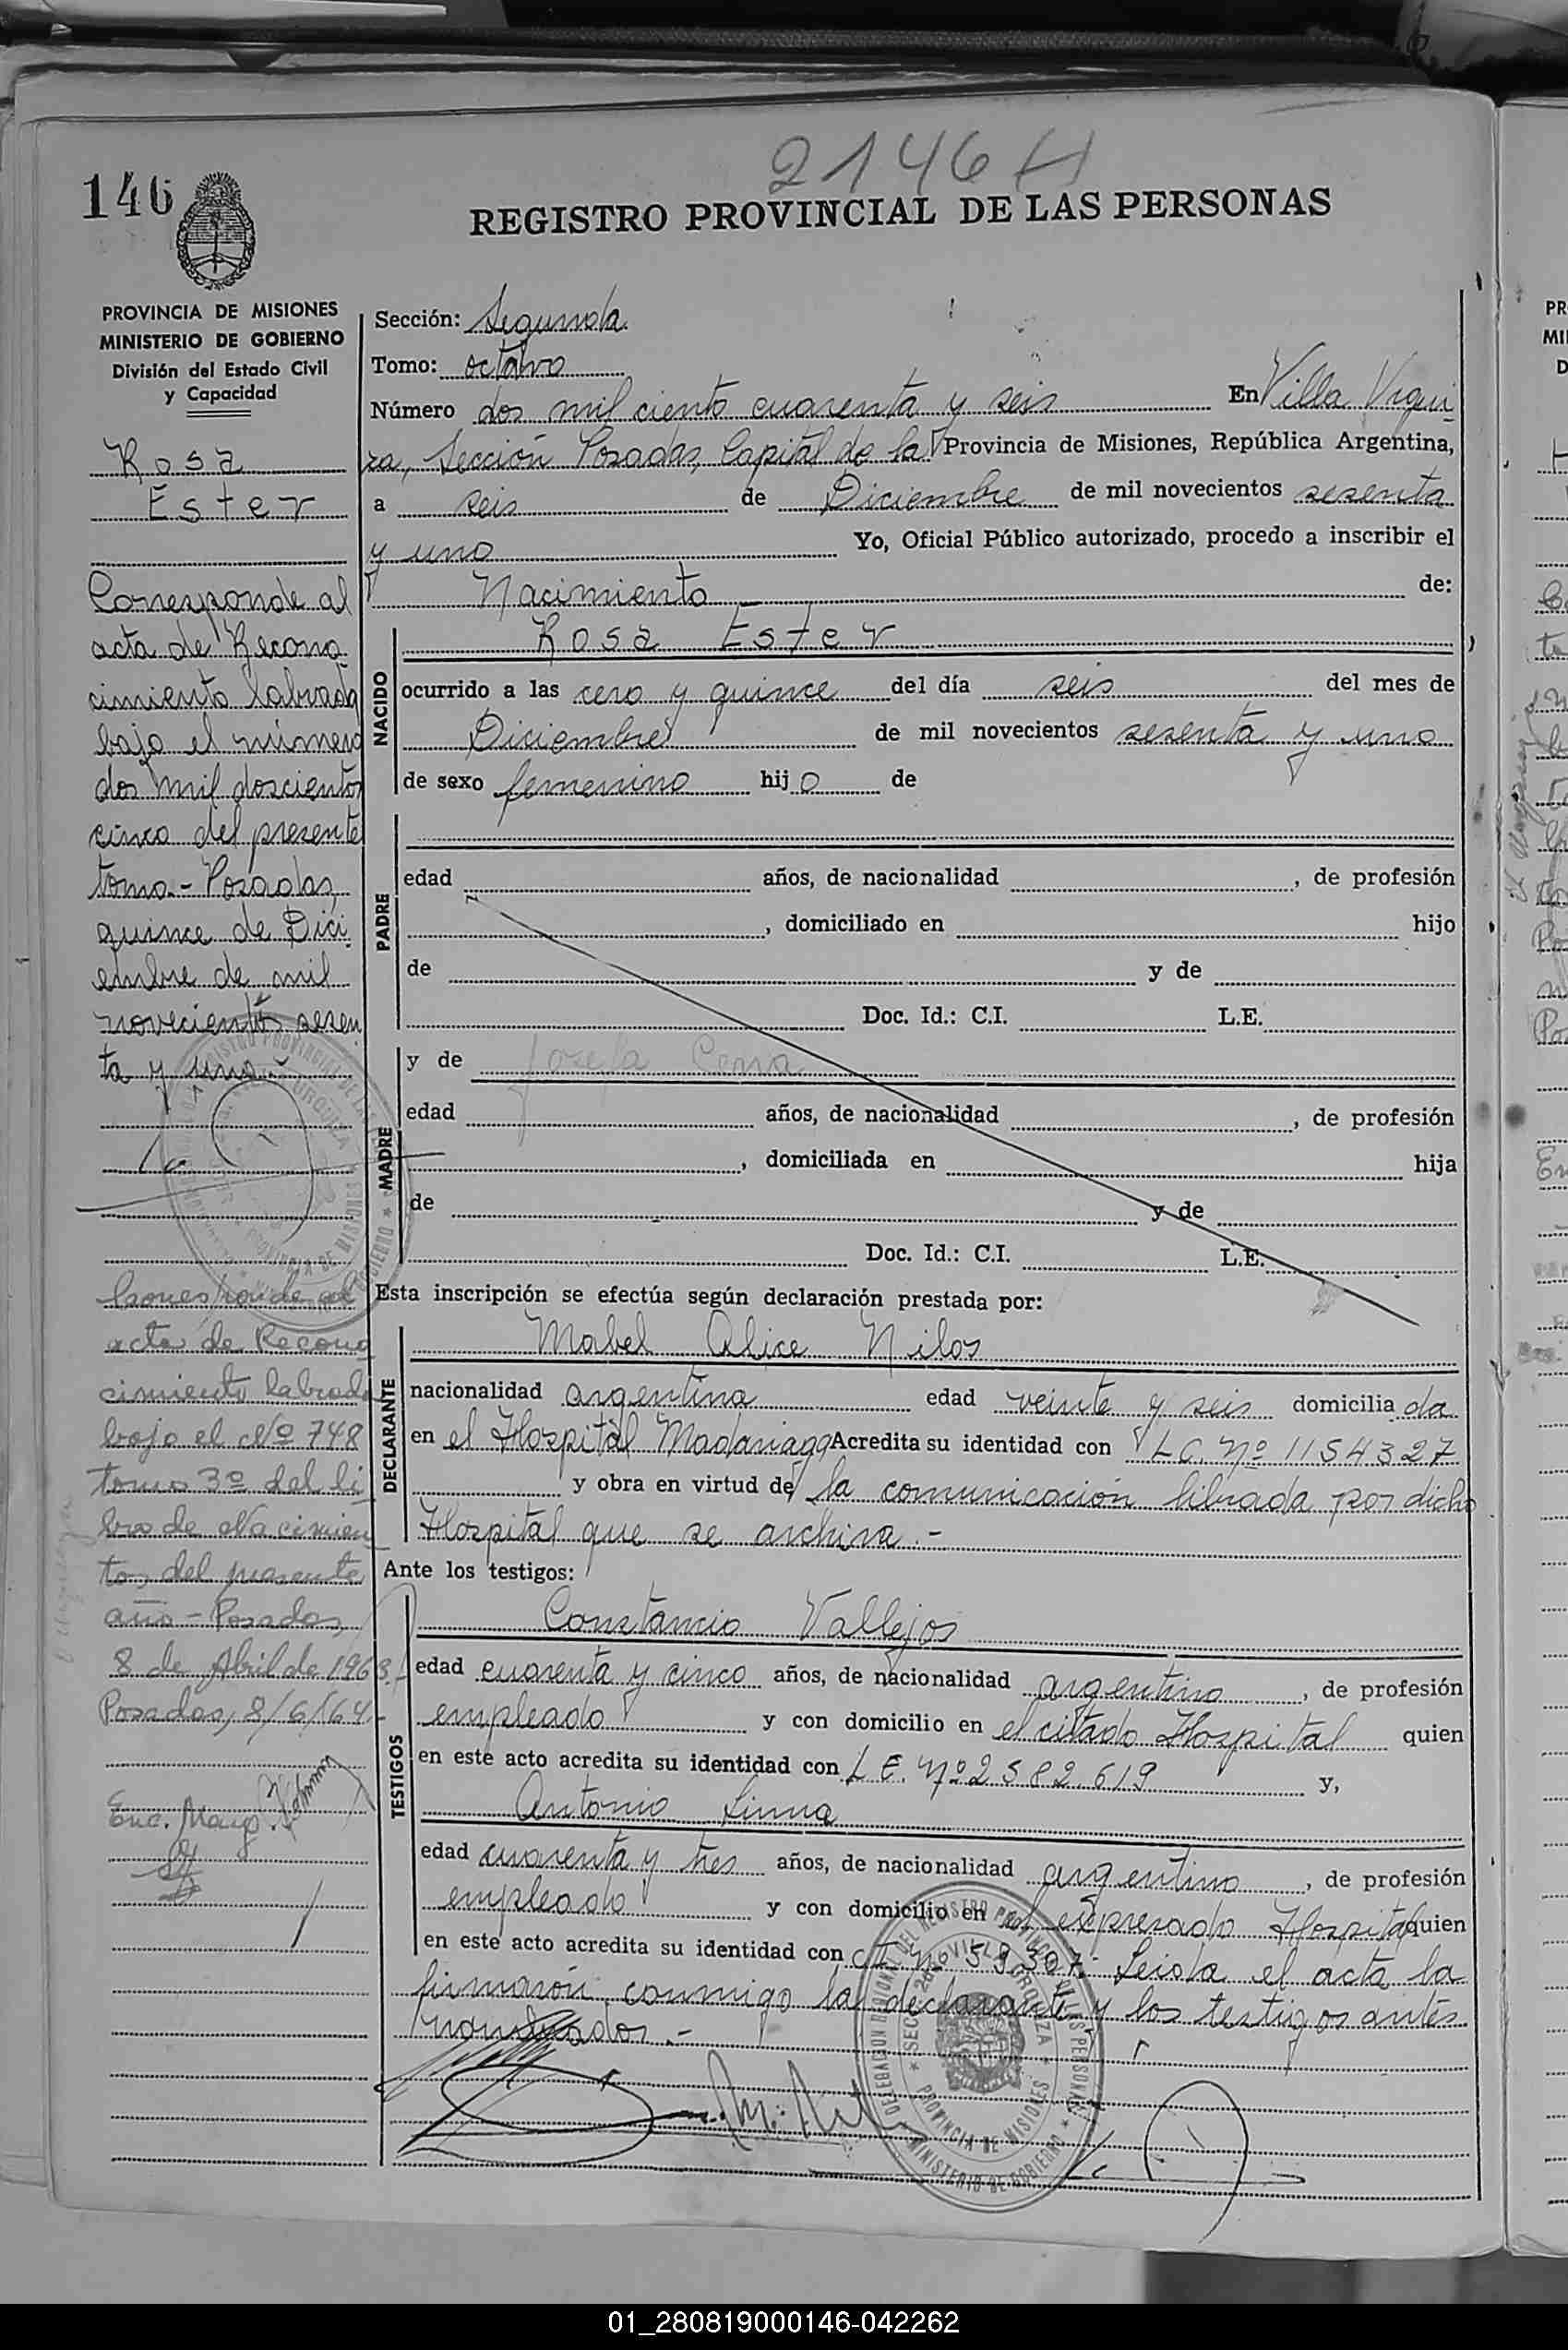 2146 H
146
REGISTRO PROVINCIAL DE LAS PERSONAS
PROVINCIA DE MISIONES
MINISTERIO DE GOBIERNO
División del Estado Civil
y Capacidad
Rosa
Ester
Corresponde al
acta de Recono
cimiento labrada
bajo el número
dos mil doscientos
cinco del presente
tomo.- Posadas,
quince de Dici
embre de mil
novecientos sesen
ta y uno.-
Corresponde al
acta de Recono
cimiento labrada
bajo el Nº 748
tomo 3º del li
bro de Nacimien
tos del presente
año - Posadas,
8 de Abril de 1963.
Posadas, 8/6/64.-
Enc. Mayo.
Sección: Segunda
Tomo: octavo
Número dos mil ciento cuarenta y seis En Villa Urqui-
za, Sección Posadas, Capital de la Provincia de Misiones, República Argentina,
a seis de Diciembre de mil novecientos sesenta
y uno Yo, Oficial Público autorizado, procedo a inscribir el
Nacimiento de:
NACIDO
Rosa Ester
ocurrido a las cero y quince del día seis del mes de
Diciembre de mil novecientos sesenta y uno
de sexo femenino hijo de
PADRE
edad años, de nacionalidad , de profesión
, domiciliado en hijo
de y de
Doc. Id.: C.I. L.E.
MADRE
y de Josefa
edad años, de nacionalidad , de profesión
, domiciliada en hija
de y de
Doc. Id.: C.I. L.E.
Esta inscripción se efectúa según declaración prestada por:
DECLARANTE
Mabel Alice Nilos
nacionalidad argentina edad veinte y seis domiciliada
en el Hospital Madariaga Acredita su identidad con L.C. Nº 1154327
y obra en virtud de la comunicación librada por dicho
Hospital que se archiva.-
Ante los testigos:
TESTIGOS
Constancio Vallejos
edad cuarenta y cinco años, de nacionalidad argentino, de profesión
empleado y con domicilio en el citado Hospital quien
en este acto acredita su identidad con L.E. Nº 2582.619 y,
Antonio
edad cuarenta y tres años, de nacionalidad argentino, de profesión
empleado y con domicilio en el expresado Hospital quien
en este acto acredita su identidad con C.I. Nº 59307.- Leida el acta la
firmarón conmigo la declarante y los testigos antes
DELEGACION REGIONAL DEL REGISTRO PROVINCIAL DE LAS PERSONAS
SEC. 2da. VILLA URQUIZA
PROVINCIA DE MISIONES
MINISTERIO DE GOBIERNO
01_280819000146-042262